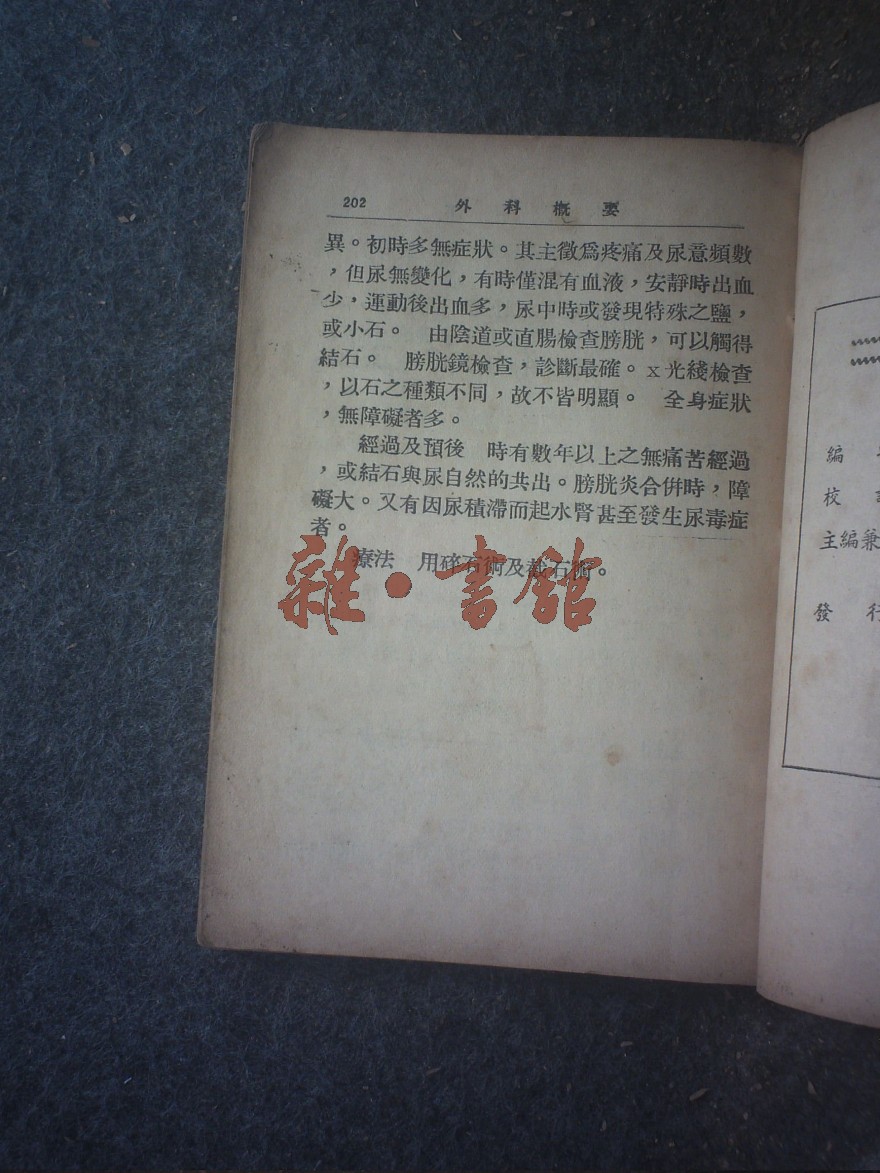 202 外科概要
異。初時多無症狀。其主徵爲疼痛及尿意頻數
,但尿無變化，有時僅混有血液，安靜時出血
少，運動後出血多，尿中時或發現特殊之鹽，
或小石。 由陰道或直腸檢查膀胱，可以觸得
結石。 膀胱鏡檢查，診斷最確。x光綫檢查
，以石之種類不同，故不皆明顯。 全身症狀
，無障礙者多。
經過及預後 時有數年以上之無痛苦經過
，或結石與尿自然的共出。膀胱炎合併時，障
礙大。又有因尿積滯而起水腎甚至發生尿毒症
者。
療法 用碎石術及截石術。
雜·書館
編
校
主編兼
發行